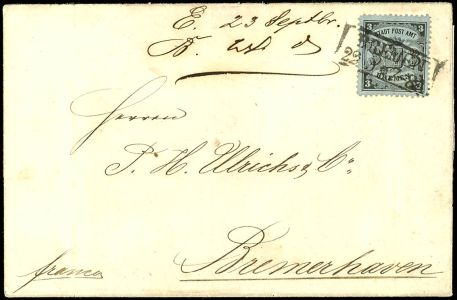 E. 23 Septbr.
B.
3 3
STADT POST AMT
BREMEN
BREMEN
3
Herren
J. H. Ulrichs & Co
Bremerhaven
franco